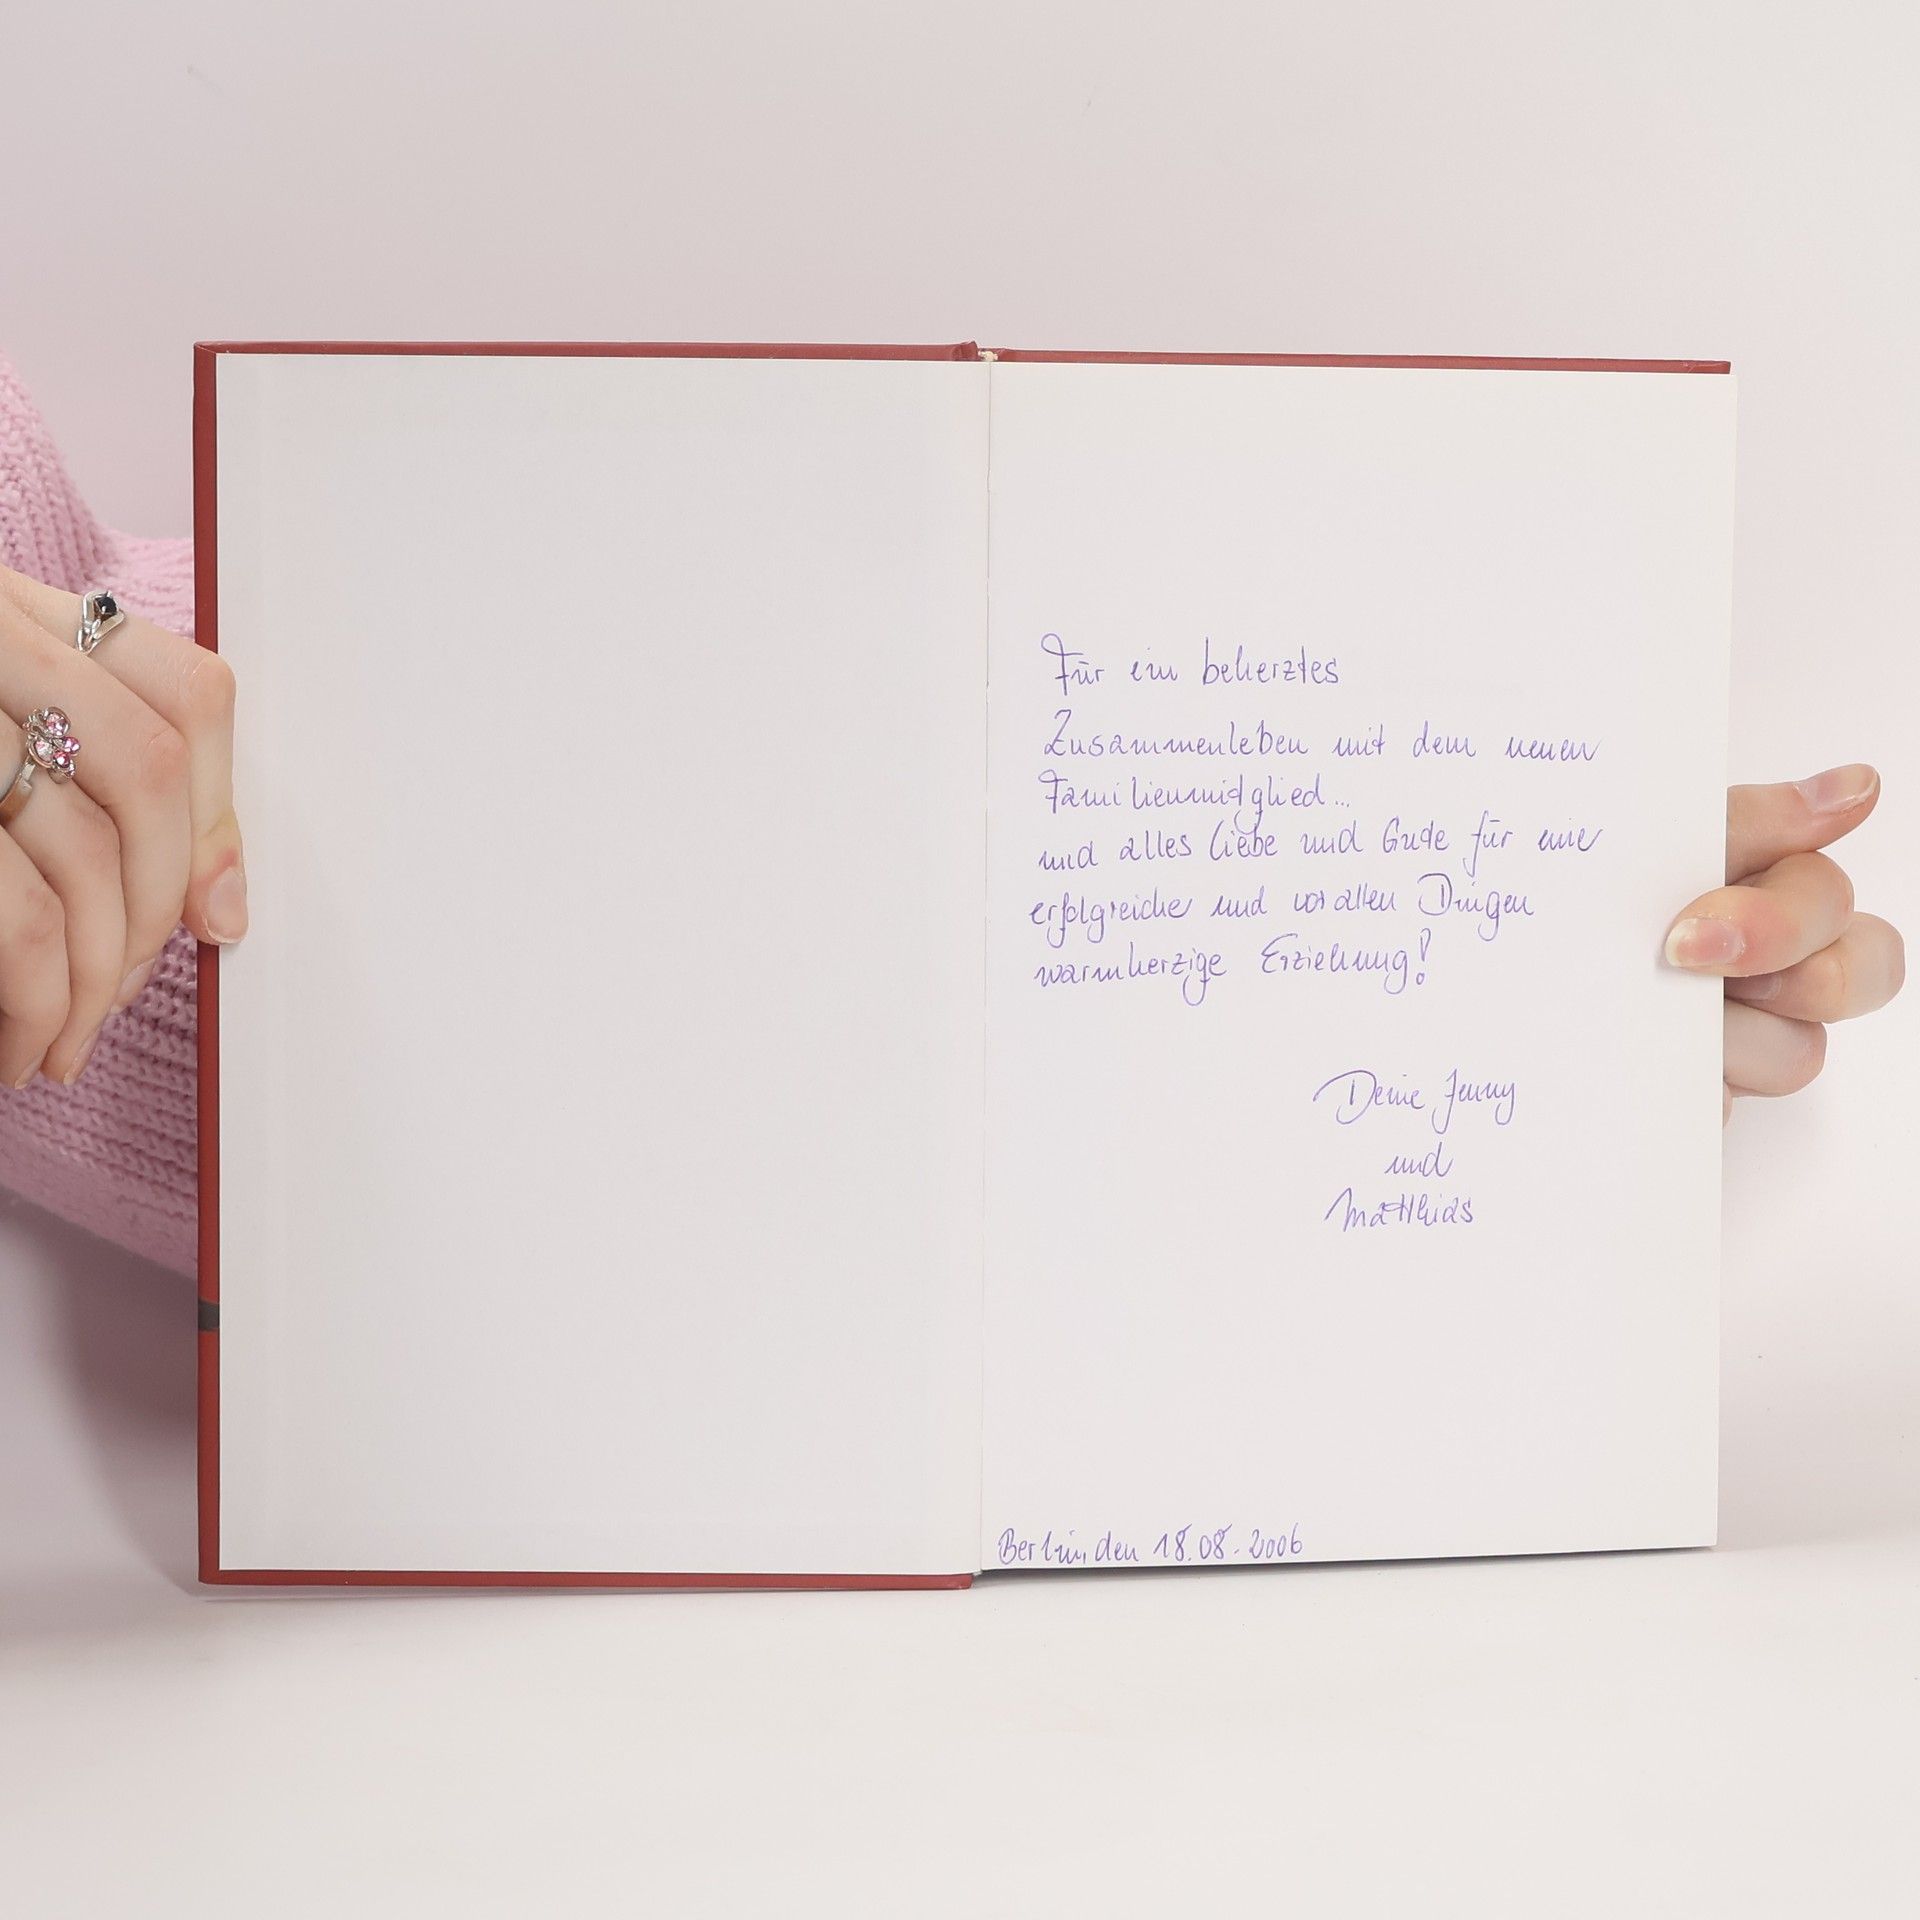 Für ein beherztes
Zusammenleben mit dem neuen
Familienmitglied...
und alles Liebe und Gute für eine
erfolgreiche und vor allen Dingen
warmherzige Erziehung!
Deine Jenny
und
Matthias
Berlin, den 18.08.2006